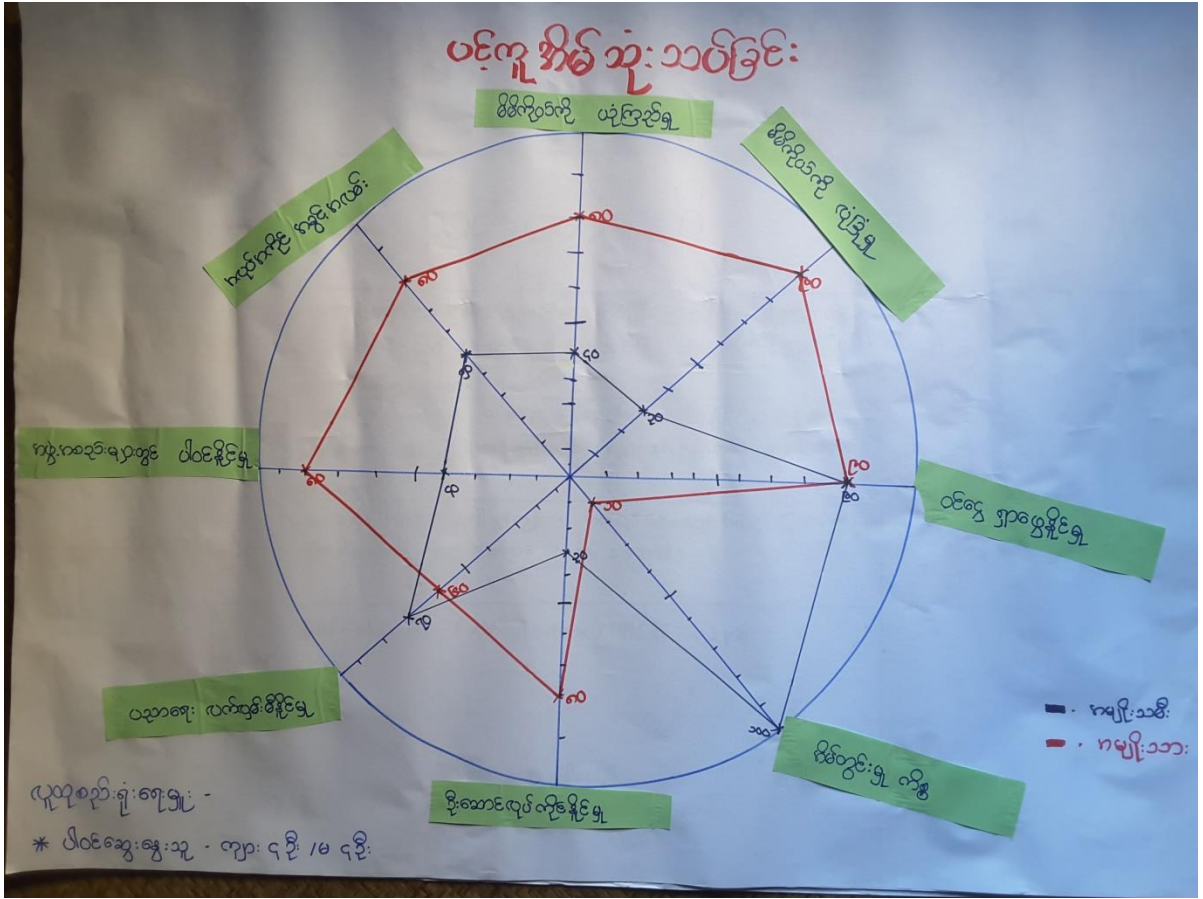 ပင့်ကူအိမ် သုံးသပ်ခြင်း
မိမိကိုယ်ကို ယုံကြည်မှု
မိမိကိုယ်ကို လုံခြုံမှု
ဝင်ငွေ ရှာဖွေနိုင်မှု
အိမ်တွင်းမှု ကိစ္စ
ဦးဆောင်လုပ်ကိုင်နိုင်မှု
ပညာရေး လက်လှမ်းမီနိုင်မှု
အဖွဲ့အစည်းများတွင် ပါဝင်နိုင်မှု
အလုပ်အကိုင် အခွင့်အလမ်း
၈၀
၉၀
၉၀
၁၀
၇၀
၈၀
၈၀
၄၀
၂၀
၉၀
၁၀၀
၂၀
၇၀
၄၀
၅၀
- အမျိုးသမီး
- အမျိုးသား
လူထုစည်းရုံးရေးမှူး -
* ပါဝင်ဆွေးနွေးသူ - ကျား ၄ ဦး / မ ၄ ဦး